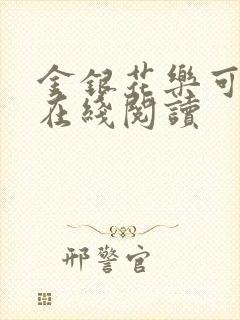 金銀花樂可
在綫閱讀
邢警官